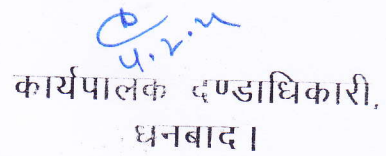 4.2.21
कार्यपालक दण्डाधिकारी,
धनबाद।